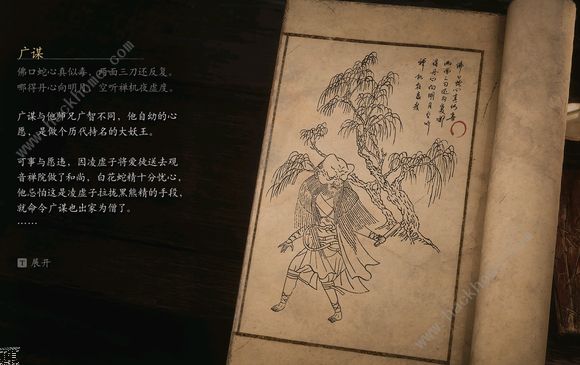 广谋
佛口蛇心真似毒，两面三刀还反复。
哪得丹心向明月，空听禅机夜虚度。
广谋与他师兄广智不同，他自幼的心
愿，是做个历代持名的大妖王。
可事与愿违，因凌虚子将爱徒送去观
音禅院做了和尚，白花蛇精十分忧心，
他忌怕这是凌虚子拉拢黑熊精的手段，
就命令广谋也出家为僧了。
……
T 展开
www.hackhome.com